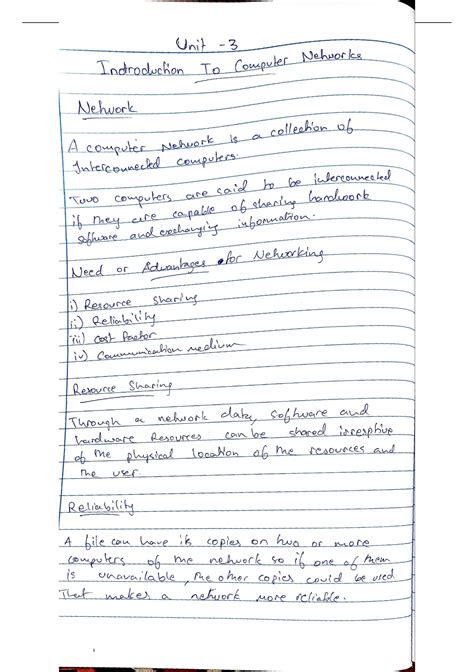 Unit - 3
Indroduction To Computer Networks
Network
A computer Network is a collection of
Interconnected computers.
Two computers are said to be interconnected
if they are capable of sharing hardwork
software and exchanging information.
Need or Advantages for Networking
i) Resource Sharing
ii) Reliability
iii) cost Factor
iv) Communication medium
Resource Sharing
Through a network data, software and
hardware Resources can be shared irresptive
of the physical location of the resources and
the user.
Reliability
A file can have its copies on two or more
computers of the network so if one of them
is unavailable, the other copies could be used.
That makes a network more reliable.